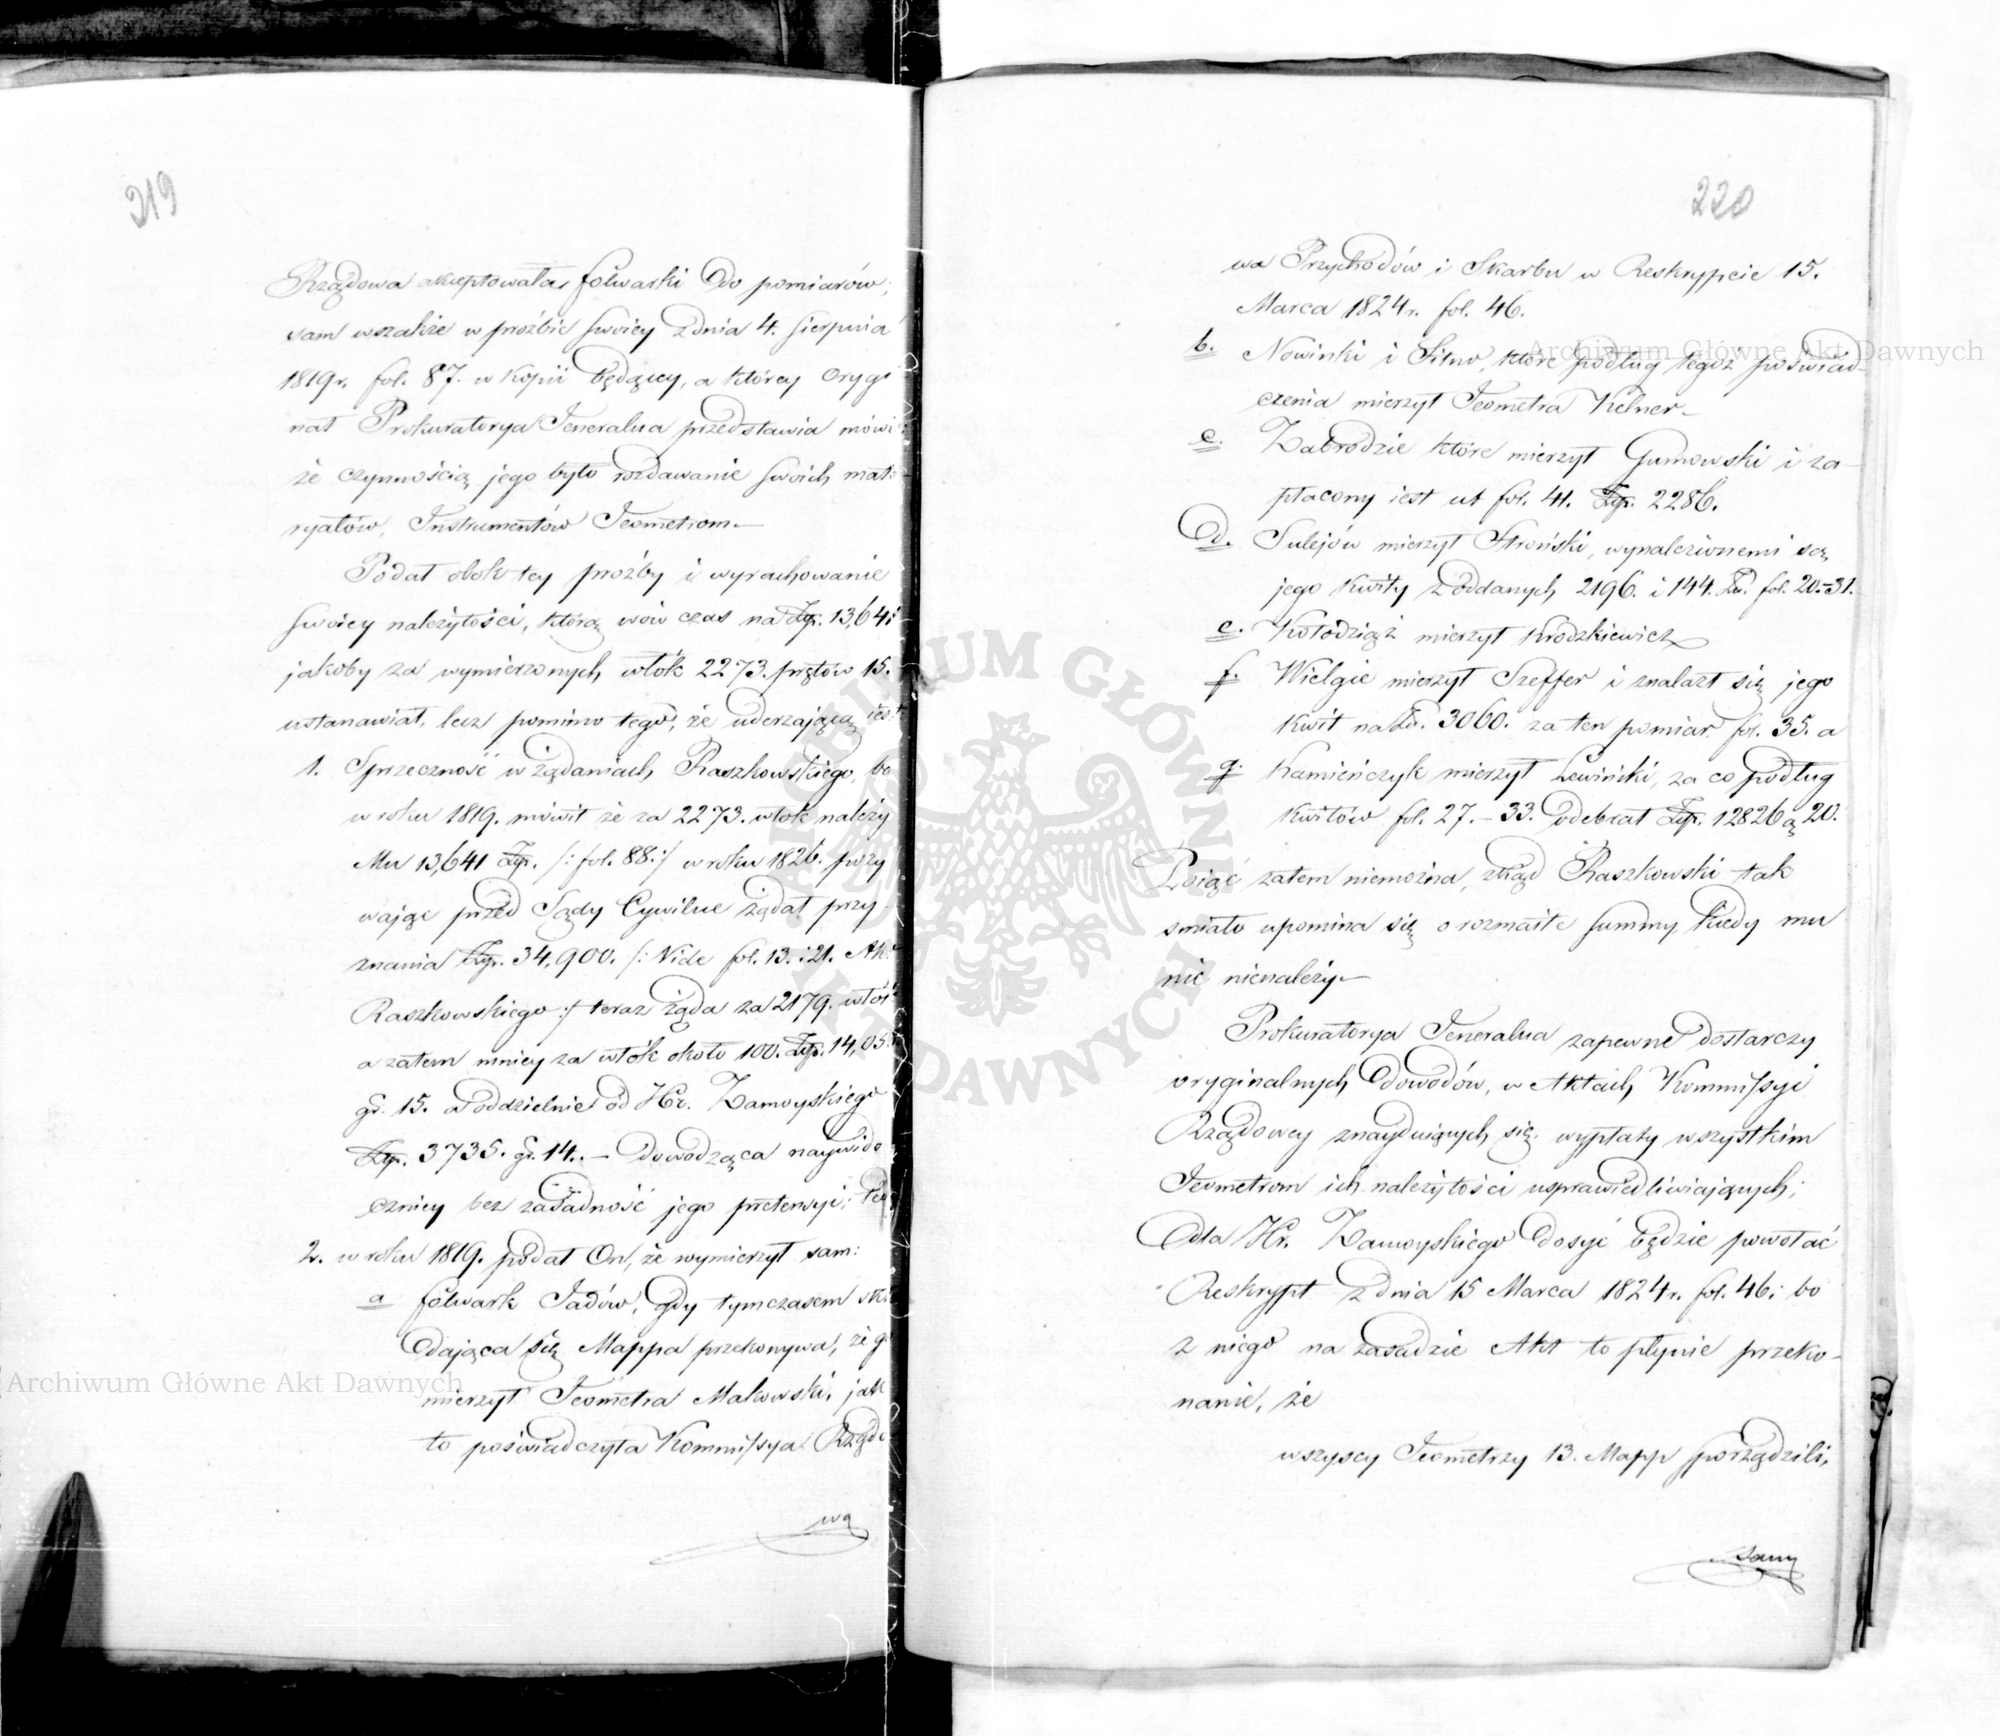 219
Rządowa akceptowała folwarki do pomiarów,
sam wszakże w proźbie swoiey z dnia 4. Sierpnia
1819r. fol. 87. w kopii będącey, a którey orygi
nał Prokuratorya Jeneralna przedstawia mówi
że czynnością jego było rozdawanie swoich mate
ryałów, Instrumentów Jeometrom.—
Podał obok tey proźby i wyrachowanie
swoiey należytości, którą wów czas na Złp. 13,641
jakoby za wymierzonych włók 2273. prętów 15.
ustanawiał, lecz pomimo tego, że uderzającą iest
1. Sprzeczność w żądaniach Raszkowskiego, bo
w roku 1819. mówił że za 2273. włok należy
Mu 13,641 Złp. /: fol. 88:/ w roku 1826. pozy
wając przed Sądy Cywilne żądał przy
znania Złp. 34,900. /: Vide fol. 13. i 21. Akt
Raszkowskiego :/ teraz żąda za 2179. włók
a zatem mniey za włók około 100. Złp. 14,05
gr. 15. a oddzielnie od Hr. Zamoyskiego
Złp. 3735. gr. 14. — dowodząca naywido
czniey bez zasadność jego pretensyi;
2. w roku 1819. podał On, że wymierzył sam:
a folwark Jadów, gdy tymczasem
dająca się Mappa przekonywa, że go
mierzył Jeometra Makowski, jak
to poświadczyła Kommissya Rządo
wa
220
wa Przychodów i Skarbu w Reskrypcie 15.
Marca 1824r. fol. 46.
b. Nowinki i Sitno, które podług tegoż poświad-
czenia mierzył Jeometra Kelner—
c. Zabrodzie które mierzył Gumowski i za-
płacony iest ut fol. 41. Złp. 2286.
d. Sulejów mierzył Stroński, wynalezionemi są
jego kwity z oddanych 2196. i 144. Zł. fol. 20.—31.
e. Kołodziąż mierzył Krodzkiewicz
f. Wielgie mierzył Szeffer i znalazł się jego
kwit na Zł. 3060. za ten pomiar fol. 35. a
g. Kamieńczyk mierzył Lewiński, za co podług
kwitów fol. 27.—33. odebrał Złp. 12826 g 20.
Poiąć zatem niemożna, zkąd Raszkowski tak
śmiało upomina się o rozmaite summy, kiedy mu
nic nienależy—
Prokuratorya Jeneralna zapewne dostarczy
oryginalnych dowodów, w Aktach Kommissyi
Rządowey znayduiących się, wypłaty wszystkim
Jeometrom ich należytości usprawiedliwiających;
dla Hr. Zamoyskiego dosyć będzie powołać
Reskrypt z dnia 15 Marca 1824r. fol. 46; bo
z niego na zasadzie Akt to płynie przeko-
nanie, że
wszyscy Jeometrzy 13. Mapp sporządzili,
samy
Archiwum Główne Akt Dawnych
Archiwum Główne Akt Dawnych
ARCHIWUM GŁÓWNE AKT DAWNYCH